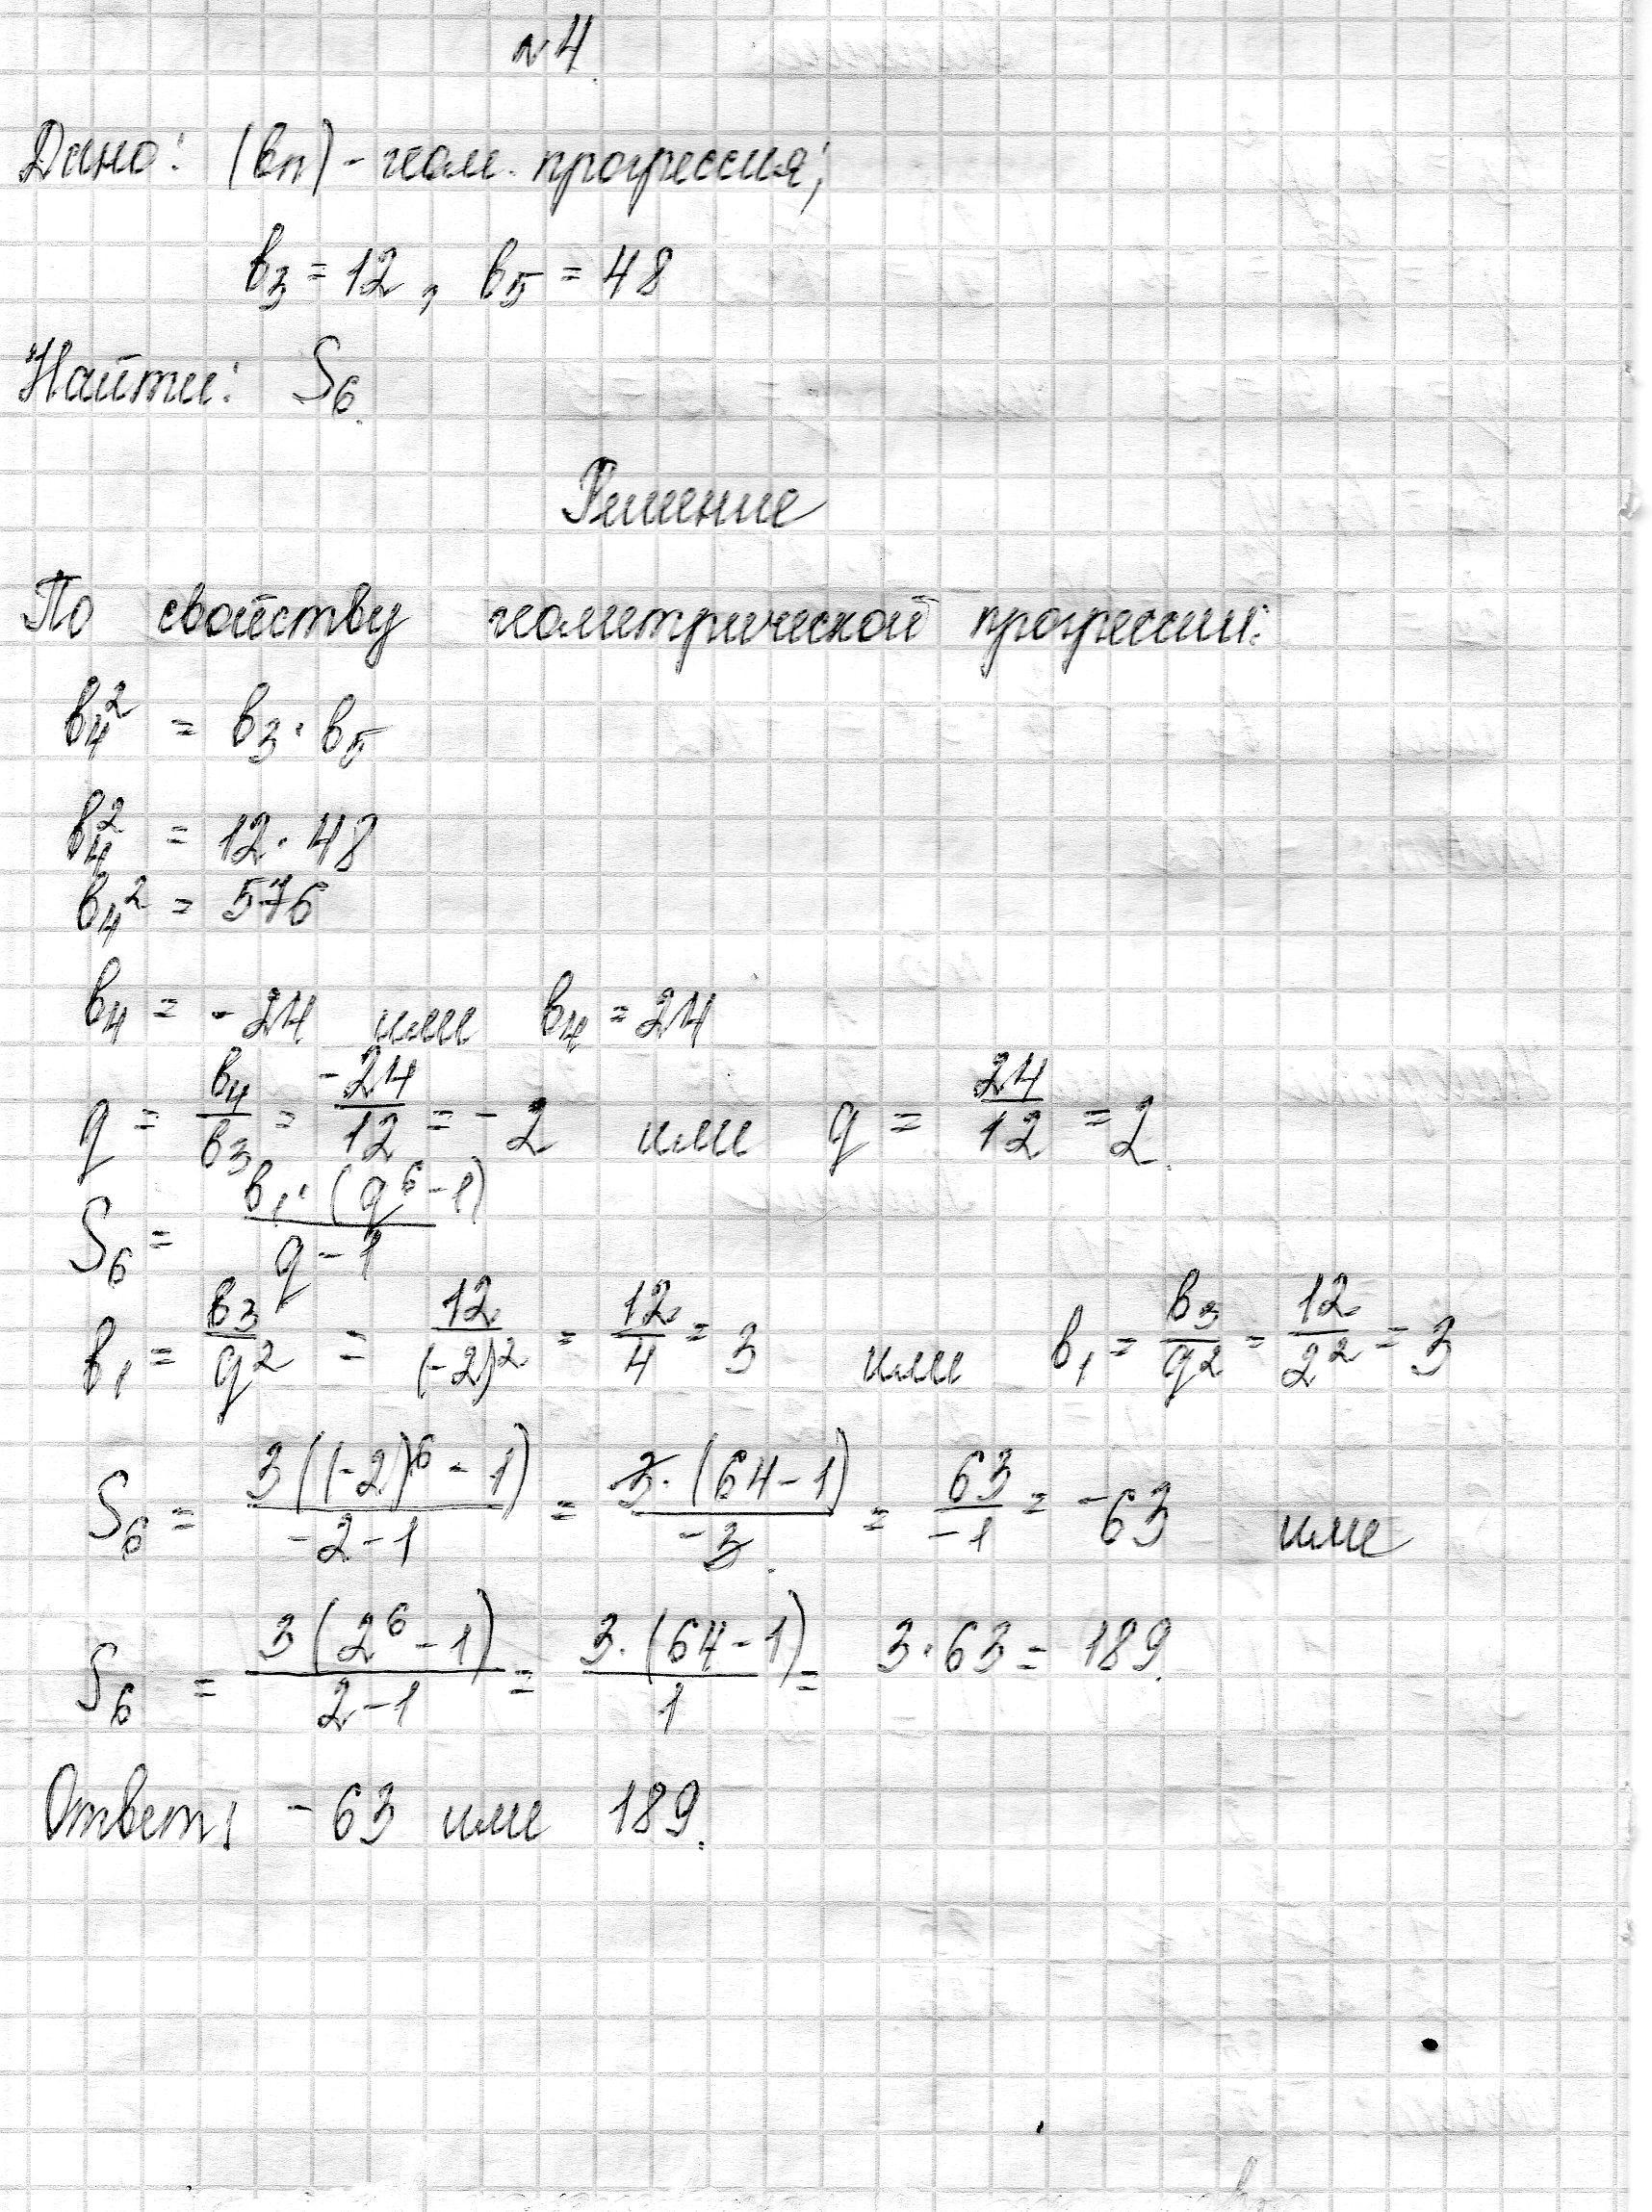 №4.
Дано: (bn) - геом. прогрессия;
b₃ = 12, b₅ = 48
Найти: S₆.
Решение
По свойству геометрической прогрессии:
b₄² = b₃ · b₅
b₄² = 12 · 48
b₄² = 576
b₄ = -24 или b₄ = 24
q = b₄/b₃ = -24/12 = -2 или q = 24/12 = 2.
S₆ = b₁·(q⁶-1)/q-1
b₁ = b₃/q² = 12/(-2)² = 12/4 = 3 или b₁ = b₃/q² = 12/2² = 3
S₆ = 3((-2)⁶-1)/-2-1 = 3·(64-1)/-3 = 63/-1 = -63 или
S₆ = 3(2⁶-1)/2-1 = 3·(64-1)/1 = 3·63 = 189.
Ответ: -63 или 189.